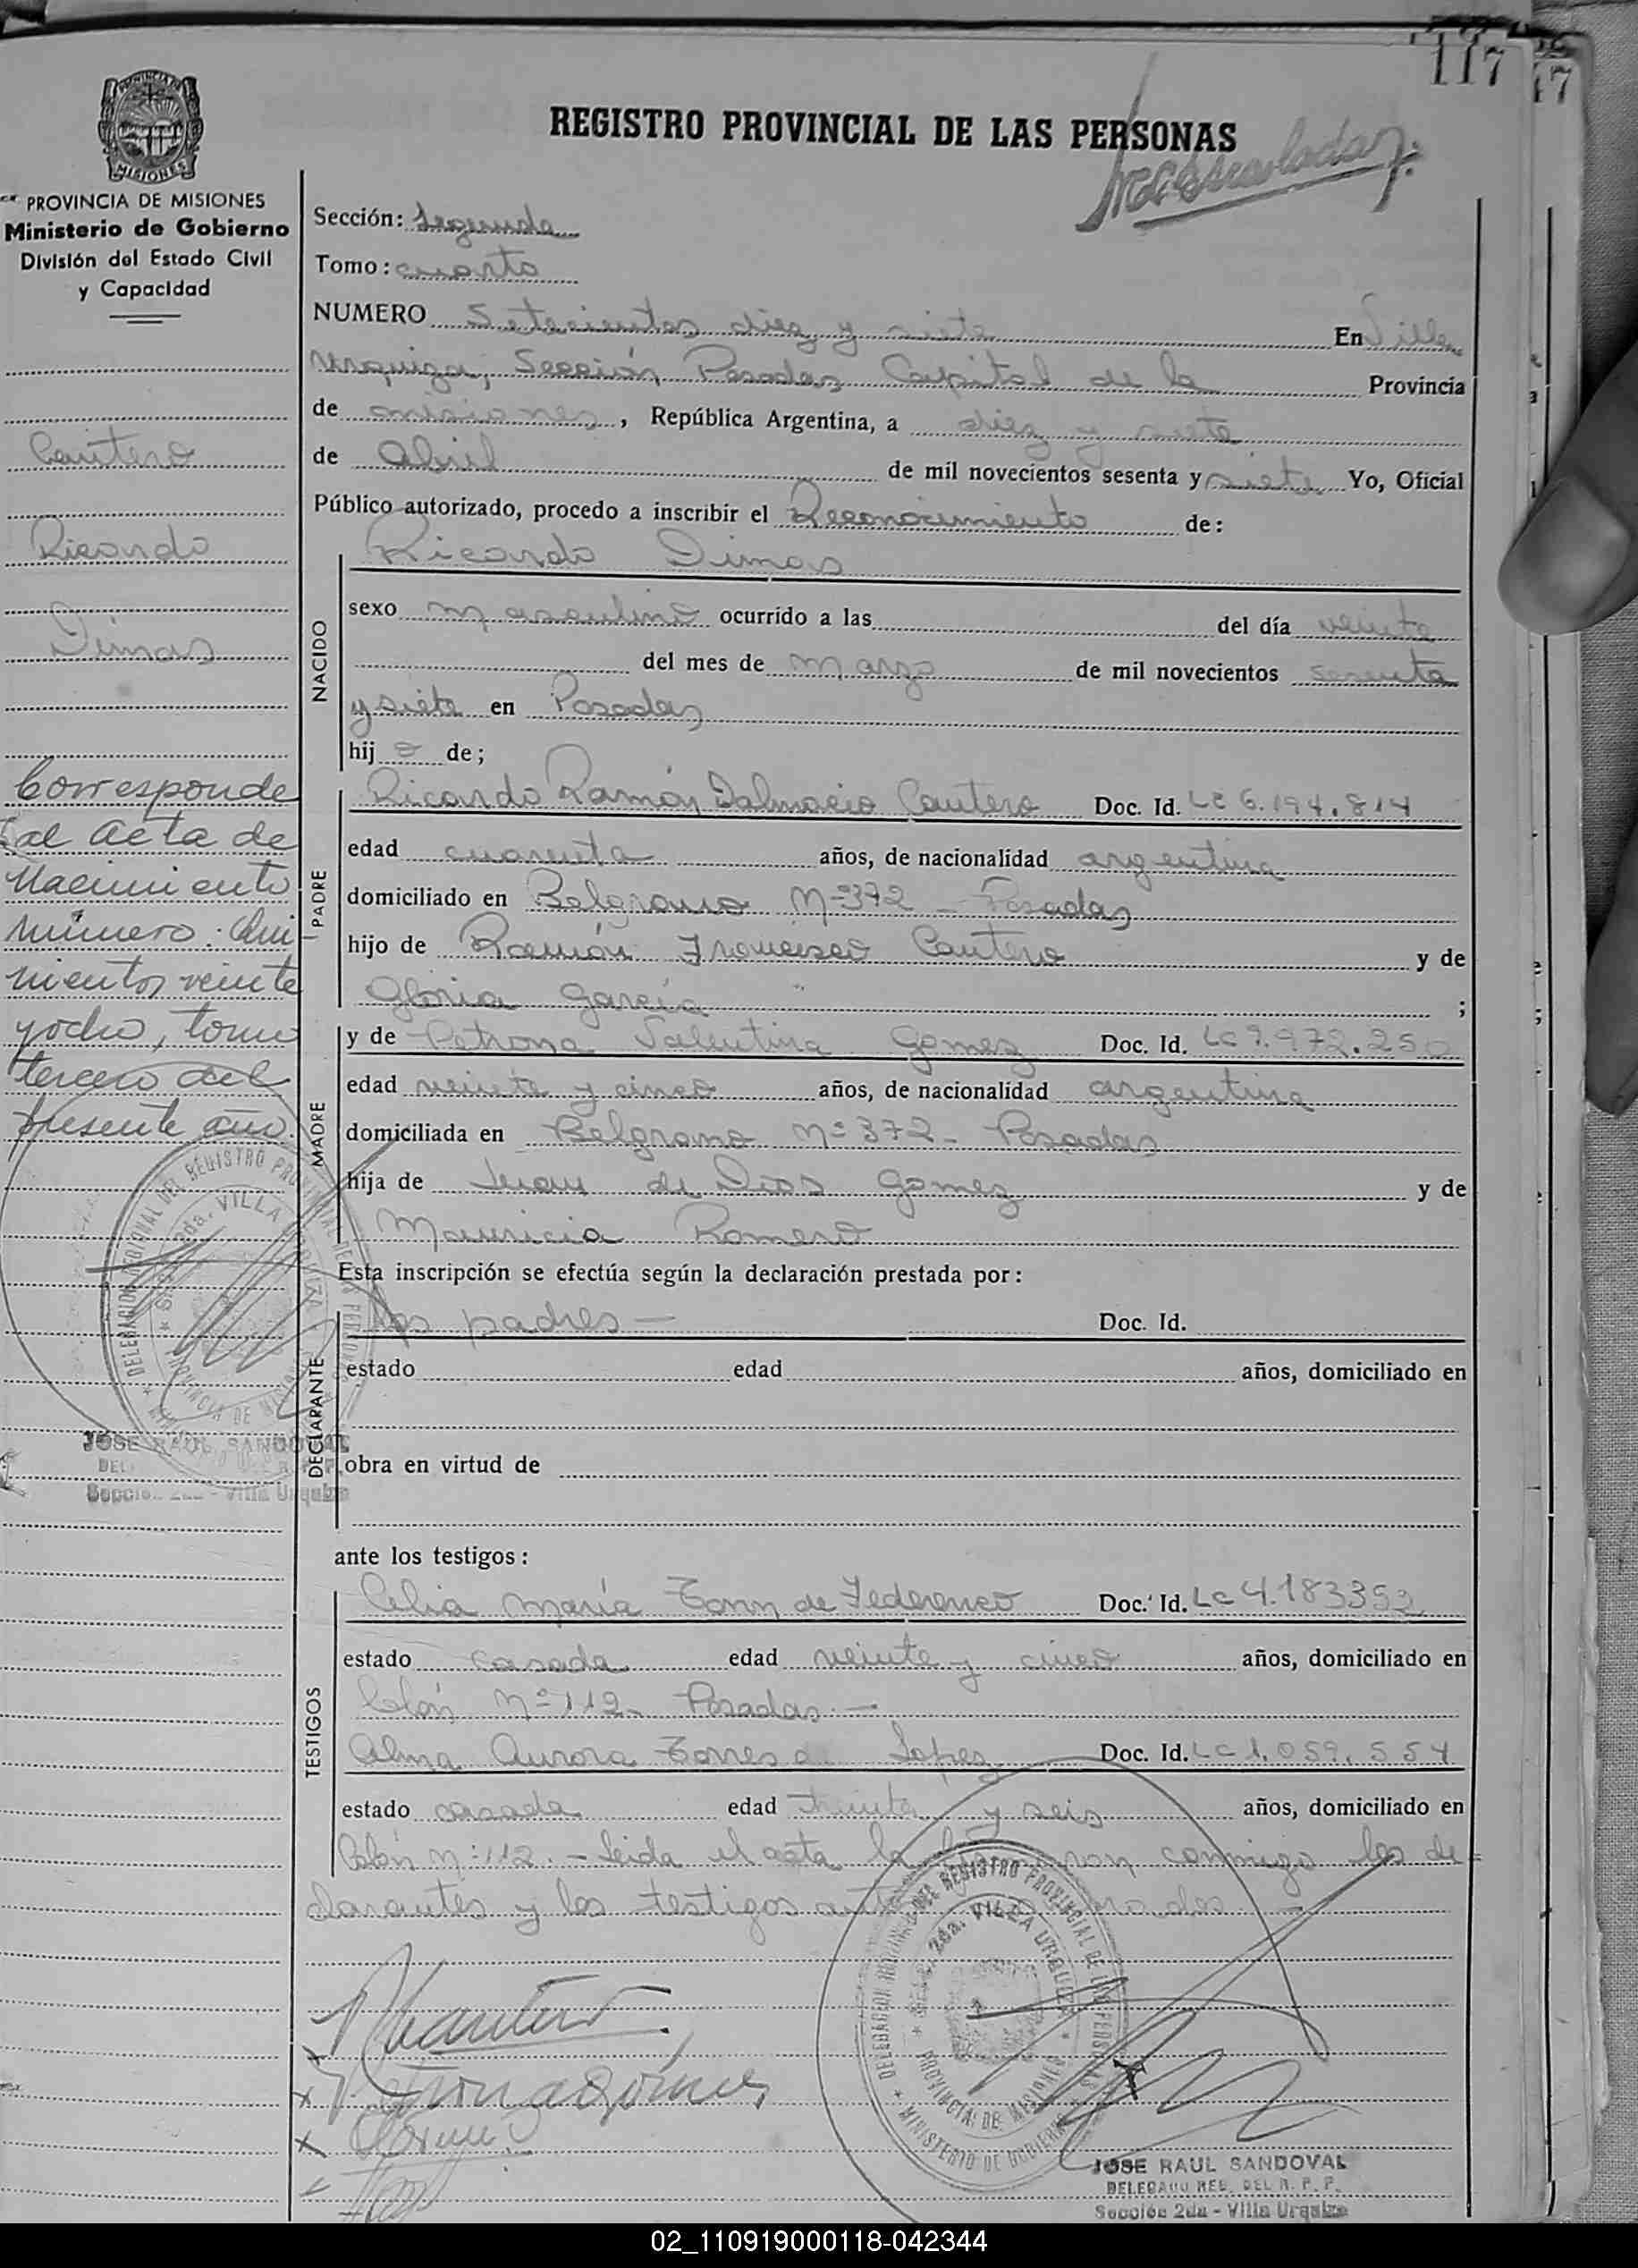 117
PROVINCIA DE
MISIONES
REGISTRO PROVINCIAL DE LAS PERSONAS
PROVINCIA DE MISIONES
Ministerio de Gobierno
División del Estado Civil
y Capacidad
Cantero
Ricardo
Dimas
Corresponde
al acta de
Nacimiento
número: Qui-
nientos veinte
y ocho, tomo
tercero del
presente año.
JOSE RAUL SANDOVAL
Sección 2da - Villa Urquiza
Sección: Segunda
Tomo: cuarto
NUMERO Setecientos diez y siete En Villa
Urquiza, Sección Posadas Capital de la Provincia
de misiones, República Argentina, a diez y siete
de Abril de mil novecientos sesenta y siete Yo, Oficial
Público autorizado, procedo a inscribir el Reconocimiento de:
NACIDO
Ricardo Dimas
sexo masculino ocurrido a las del día veinte
del mes de marzo de mil novecientos sesenta
y siete en Posadas
hijo de;
PADRE
Ricardo Ramón Dalmacio Cantero Doc. Id. LE 6.194.814
edad cuarenta años, de nacionalidad argentina
domiciliado en Belgrano Nº 372 - Posadas
hijo de Ramón Francisco Cantero y de
Gloria García ;
MADRE
y de Petrona Valentina Gomez Doc. Id. LC 9.972.250
edad veinte y cinco años, de nacionalidad argentina
domiciliada en Belgrano Nº 372 - Posadas
hija de Juan de Dios Gomez y de
Mauricia Romero
Esta inscripción se efectúa según la declaración prestada por:
DECLARANTE
los padres — Doc. Id.
estado edad años, domiciliado en
obra en virtud de
ante los testigos:
TESTIGOS
Celia María de Doc. Id. LC 4.183353
estado casada edad veinte y cinco años, domiciliado en
Colón Nº 112 - Posadas. —
Alma Aurora Torres Lopez Doc. Id. LC 1.059.554
estado casada edad treinta y seis años, domiciliado en
Colón Nº 112. - Leida el acta la conmigo los de
clarantes y los testigos
RCantero
Petrona Gómez
DELEGACION REGIONAL DEL REGISTRO PROVINCIAL DE LAS PERSONAS
2da. VILLA URQUIZA
PROVINCIA DE MISIONES
MINISTERIO DE GOBIERNO
JOSE RAUL SANDOVAL
DELEGADO REG. DEL R. P. P.
Sección 2da - Villa Urquiza
02_110919000118-042344